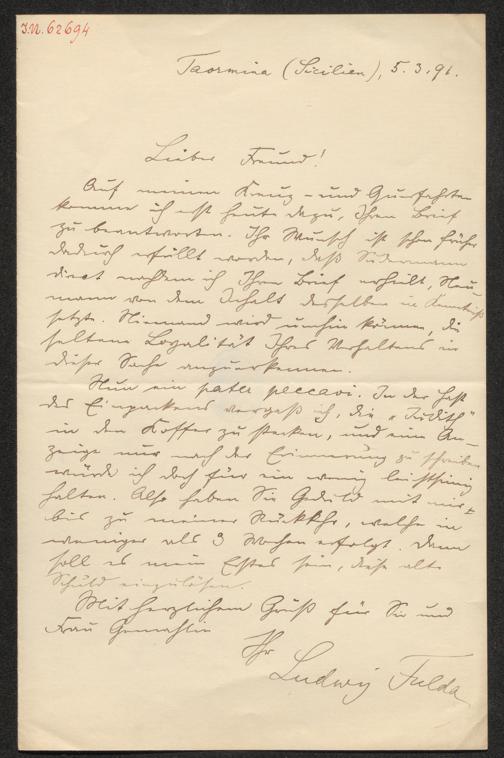 J.N. 62694
Taormina (Sicilien), 5. 3. 91.
Lieber Freund!
Auf meinen Kreuz- und Querfahrten
komme ich erst heute dazu, Ihren Brief
zu beantworten. Ihr Wunsch ist schon früher
dadurch erfüllt worden, daß Sudermann
direct nachdem ich Ihren Brief erhielt, Neu-
mann von dem Inhalt desselben in Kenntniß
setzte. Niemand wird umhin können, die
seltene Loyalität Ihres Verhaltens in
dieser Sache anzuerkennen.
Nun ein pater peccavi. In der Hast
des Einpackens vergaß ich, die „Judith"
in den Koffer zu stecken, und eine An-
zeige nur nach der Erinnerung zu schreiben
würde ich doch für ein wenig leichtsinnig
halten. Also haben Sie Geduld mit mir
bis zu meiner Rückkehr, welche in
weniger als 3 Wochen erfolgt. Dann
soll es mein Erstes sein, diese alte
Schuld einzulösen.
Mit herzlichem Gruß für Sie und
Frau Gemahlin
Ihr
Ludwig Fulda